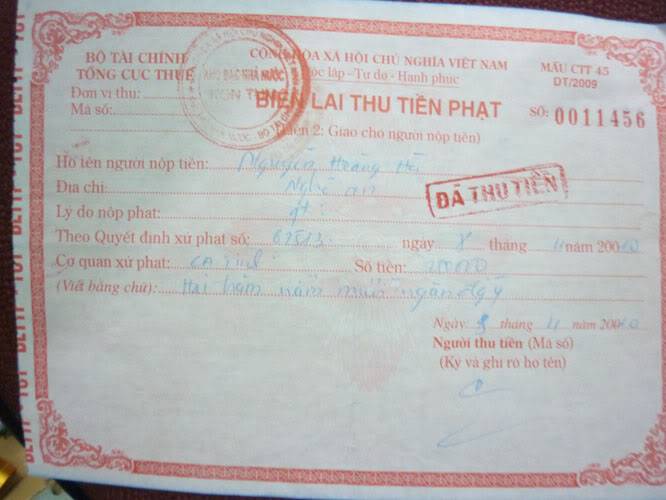 BỘ TÀI CHÍNH
TỔNG CỤC THUẾ
Đơn vị thu:
Mã số:
CỘNG HÒA XÃ HỘI CHỦ NGHĨA VIỆT NAM
Độc lập - Tự do - Hạnh phúc
BIÊN LAI THU TIỀN PHẠT
(Liên 2: Giao cho người nộp tiền)
MẪU CTT 45
DT/2009
SỐ: 0011456
KHO BẠC NHÀ NƯỚC
KON TUM
Họ tên người nộp tiền: Nguyễn Hoàng
Địa chỉ: Nghệ an
ĐÃ THU TIỀN
Lý do nộp phạt: gt
Theo Quyết định xử phạt số: ngày 8 tháng 11 năm 20010
Cơ quan xử phạt: CA tỉnh Số tiền:
(Viết bằng chữ): Hai trăm năm mươi ngàn đg
Ngày 8 tháng 11 năm 20010
Người thu tiền (Mã số)
(Ký và ghi rõ họ tên)